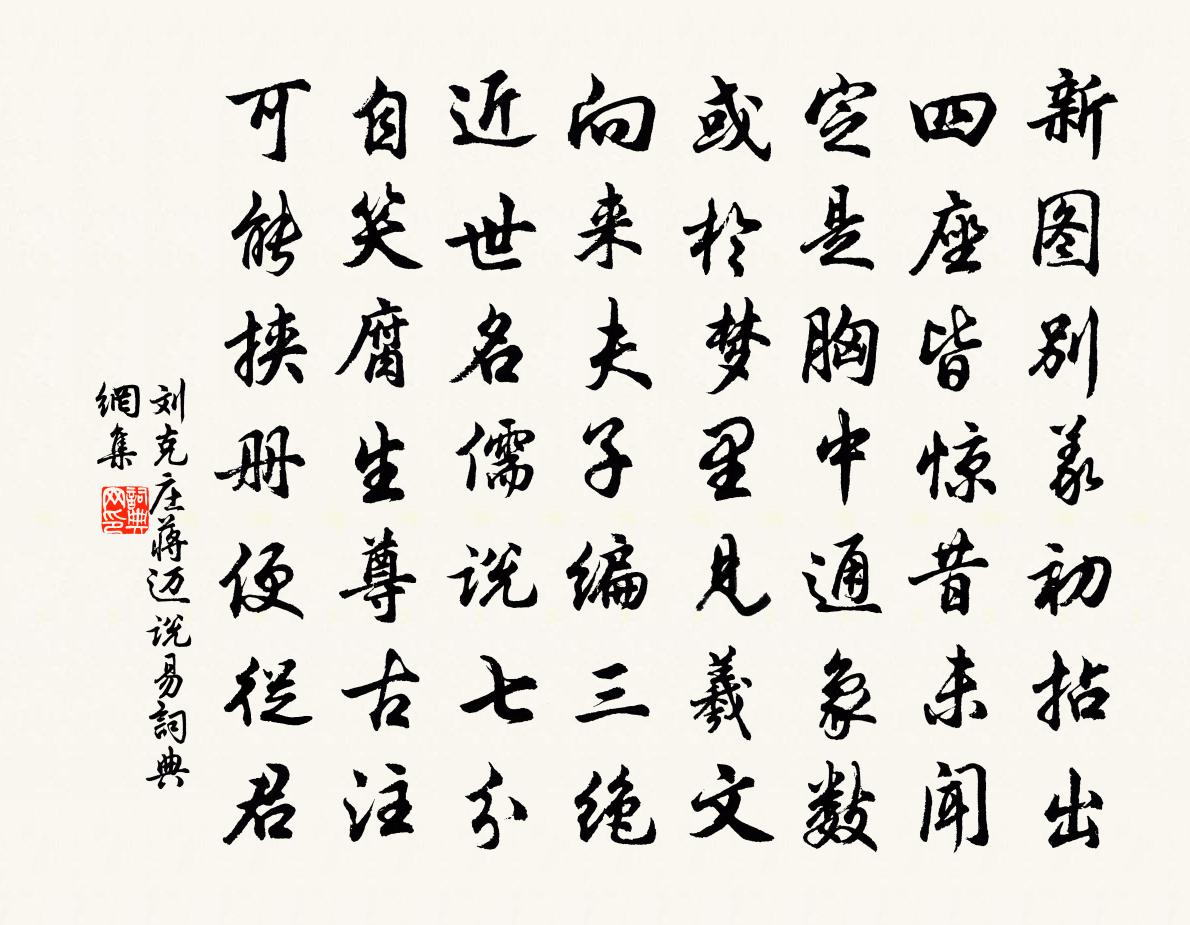 新图别义初拈出
四座皆惊昔未闻
定是胸中通象数
或于梦里见羲文
向来夫子编三绝
近世名儒说七分
自笑腐生尊古注
可能挟册便从君
刘克庄蒋迈说易詞典
網集
詞典
网印